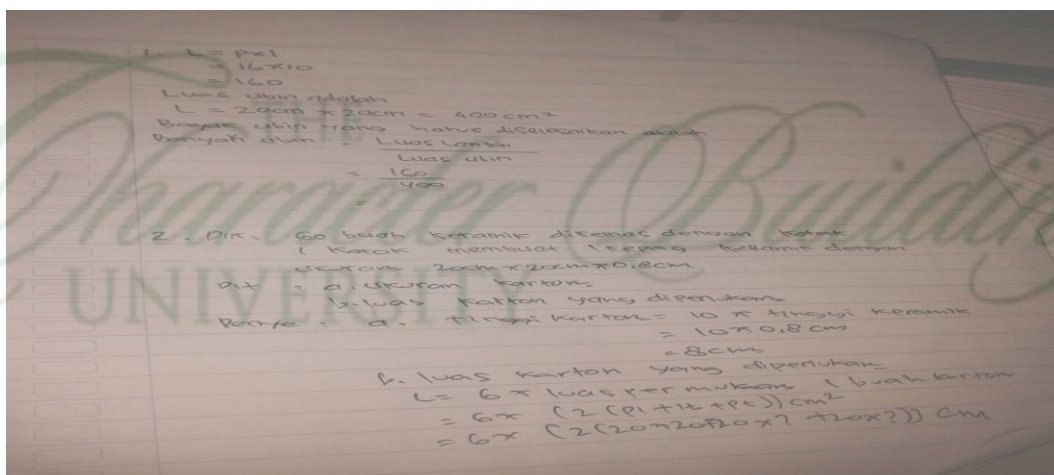 1. L = p x l
= 16 x 10
= 160
Luas ubin adalah
L = 20cm x 20cm = 400 cm²
Bayak ubin yang harus diselesaikan adalah
Banyak ubin = Luas Lantai
Luas ubin
= 160
400
=
2. Dik = 60 buah keramik dikemas dengan kotak
1 kotak membuat keramik dengan
ukuran 20cm x 20cm x 0,8cm
Dit = a. ukuran karton
b. luas karton yang diperlukan
Penye = a. tinggi karton = 10 x tinggi keramik
= 10 x 0,8 cm
= 8 cm
b. luas karton yang diperlukan
L = 6 x luas permukaan 1 buah karton
= 6 x (2 (pl + lt + pt)) cm²
= 6 x (2 (20 x 20 + 20 x ? + 20 x ?)) cm
THE
Character Buildin
UNIVERSITY